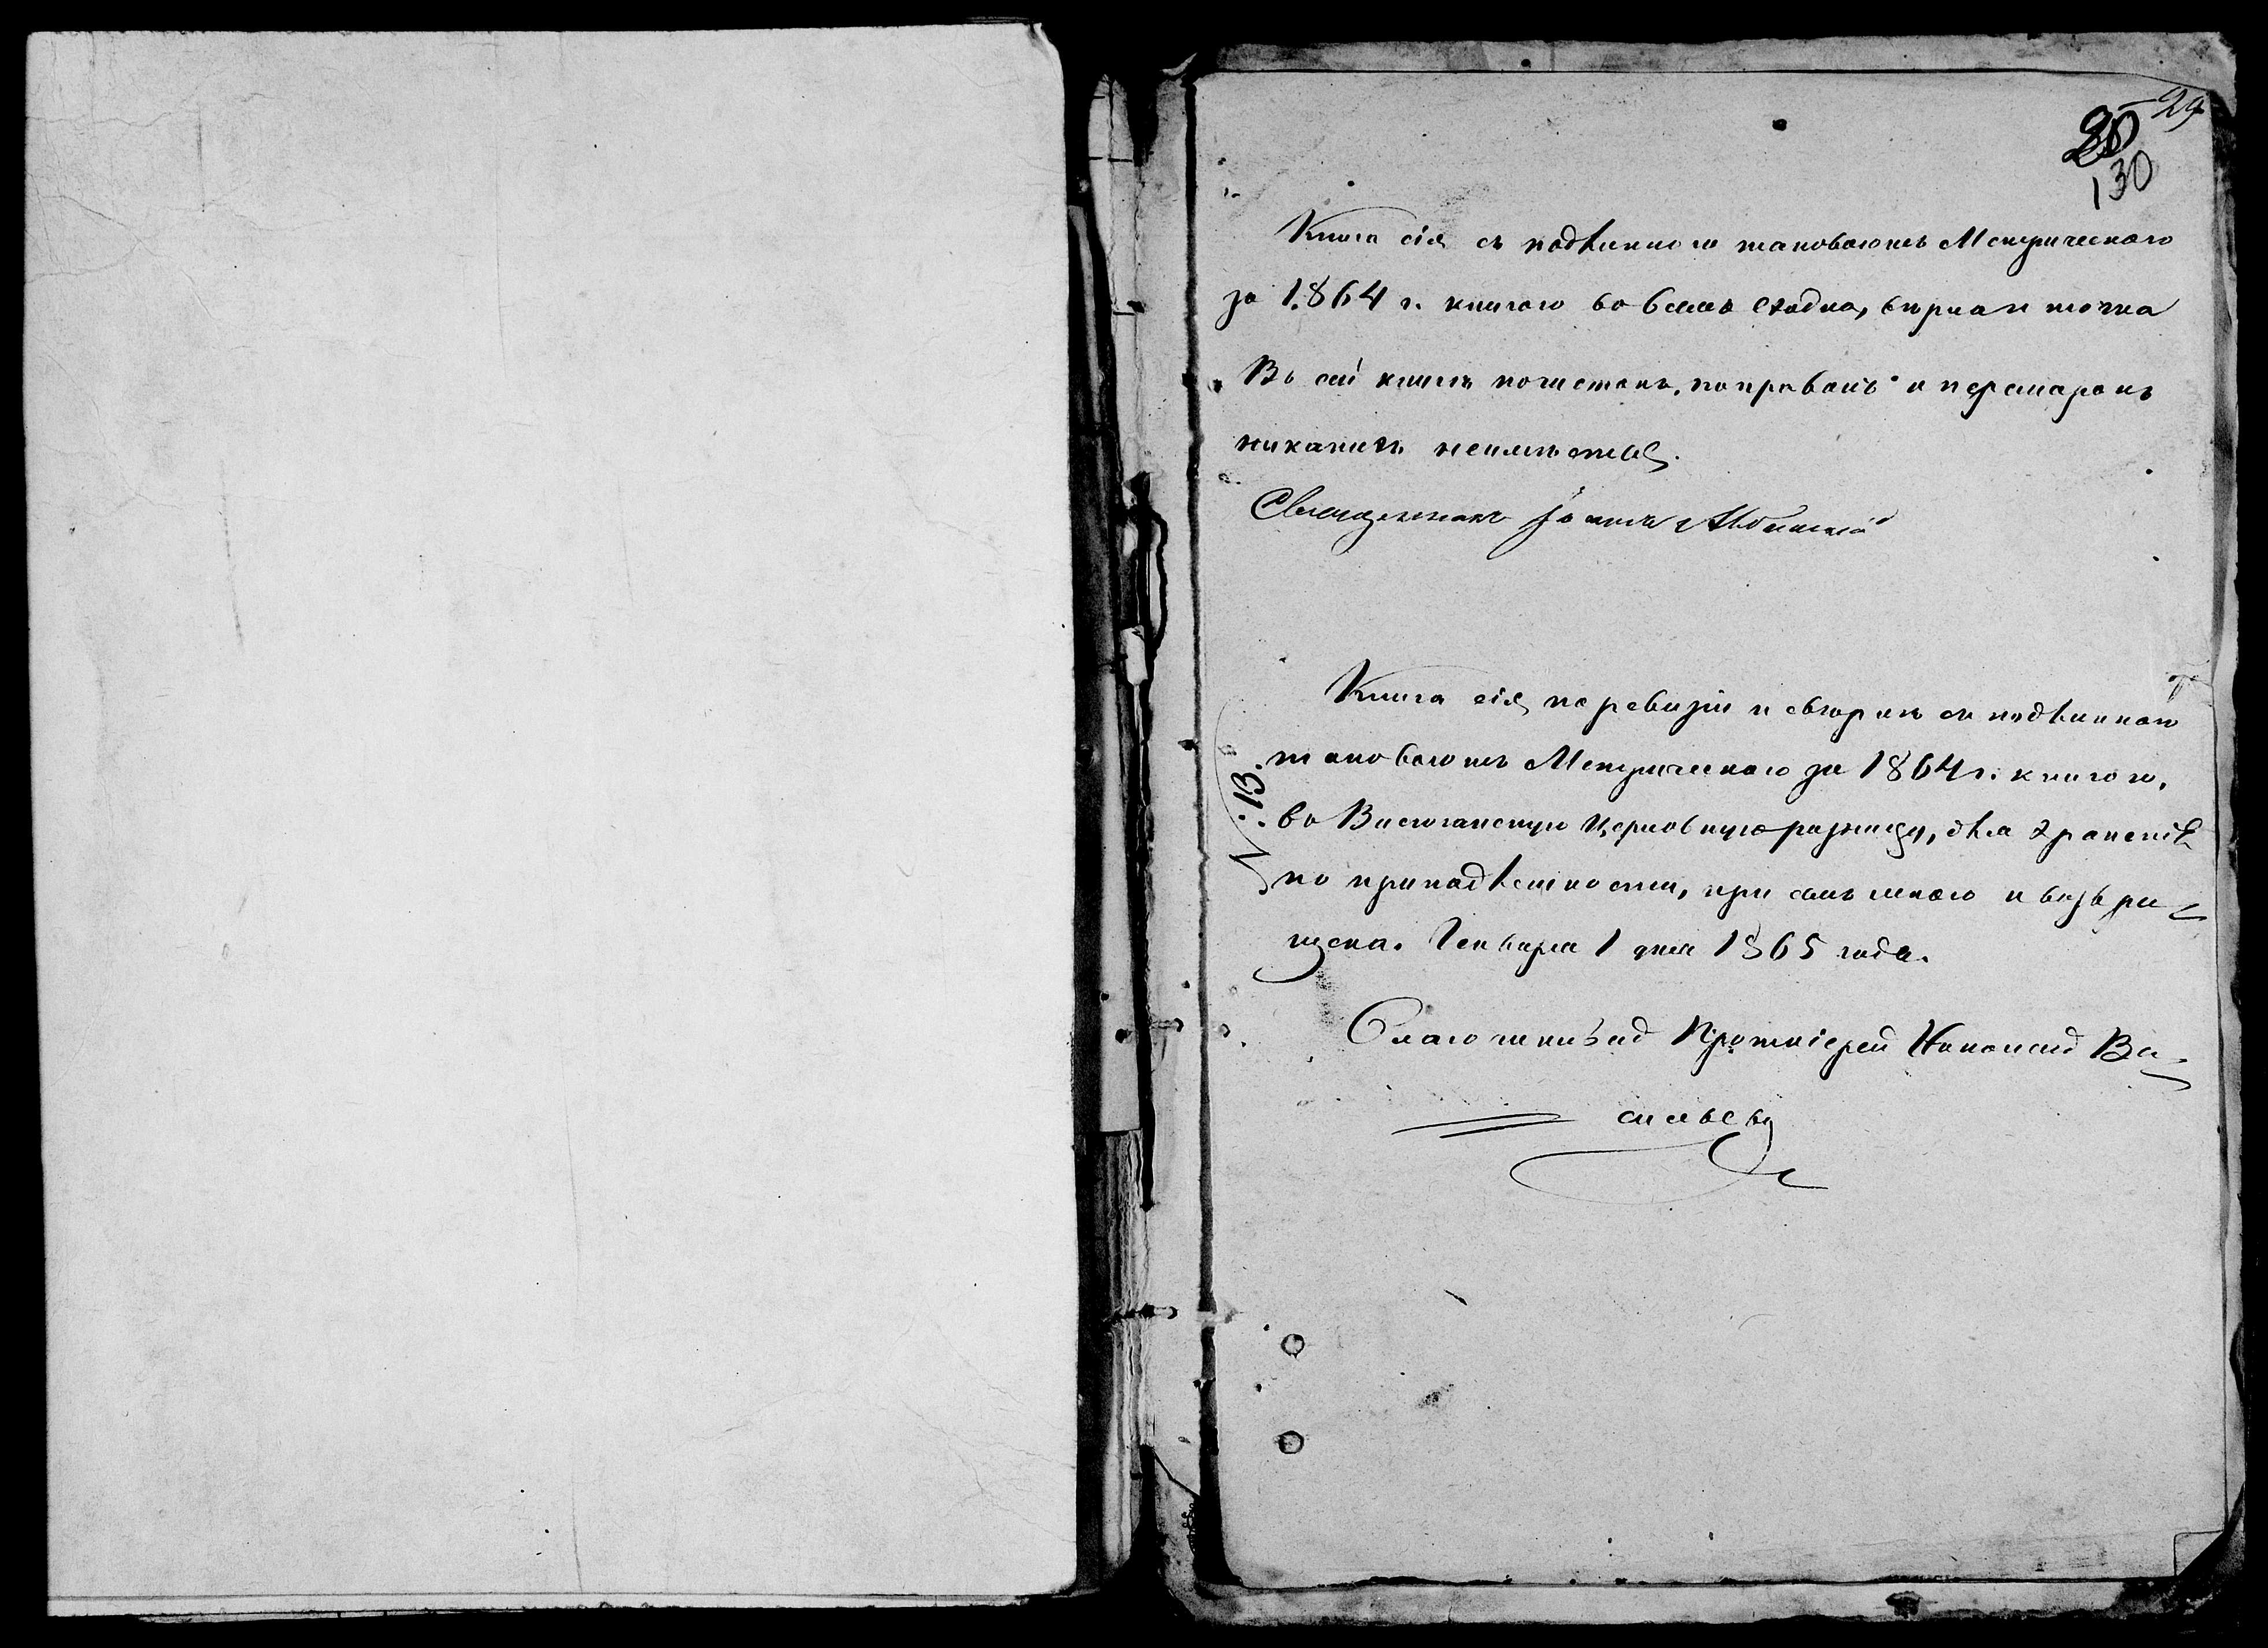 29
130
Книга сія съ подлинною таковоюжъ Метрическою
за 1864 г. книгою во всемъ сходна, вѣрна и точна
Въ сей книгѣ почистокъ, поправокъ и перемарокъ
никакихъ неимѣется.
Священникъ Іоаннъ
Книга сія по ревизіи и свѣркѣ съ подлинною
таковоюжъ Метрическою за 1864 г. книгою,
во Васюганскую Церковную ризницу, для храненія
по принадлежности, при семъ мною и возвра-
щена. Генваря 1 дня 1865 года.
№ 13.
Благочинный Протоіерей Никаноръ Ва-
сильевъ